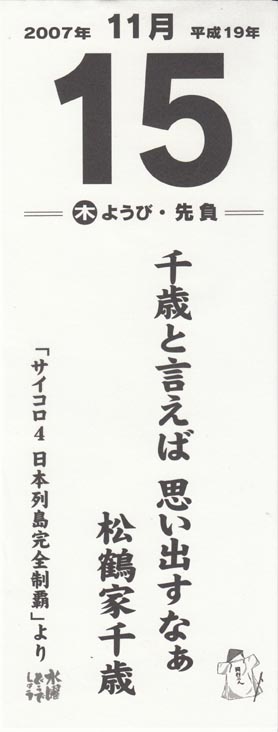 2007年 11月 平成19年
15
木ようび・先負
千歳と言えば 思い出すなぁ
松鶴家千歳
「サイコロ4 日本列島完全制覇」より
水曜
どうで
しょう